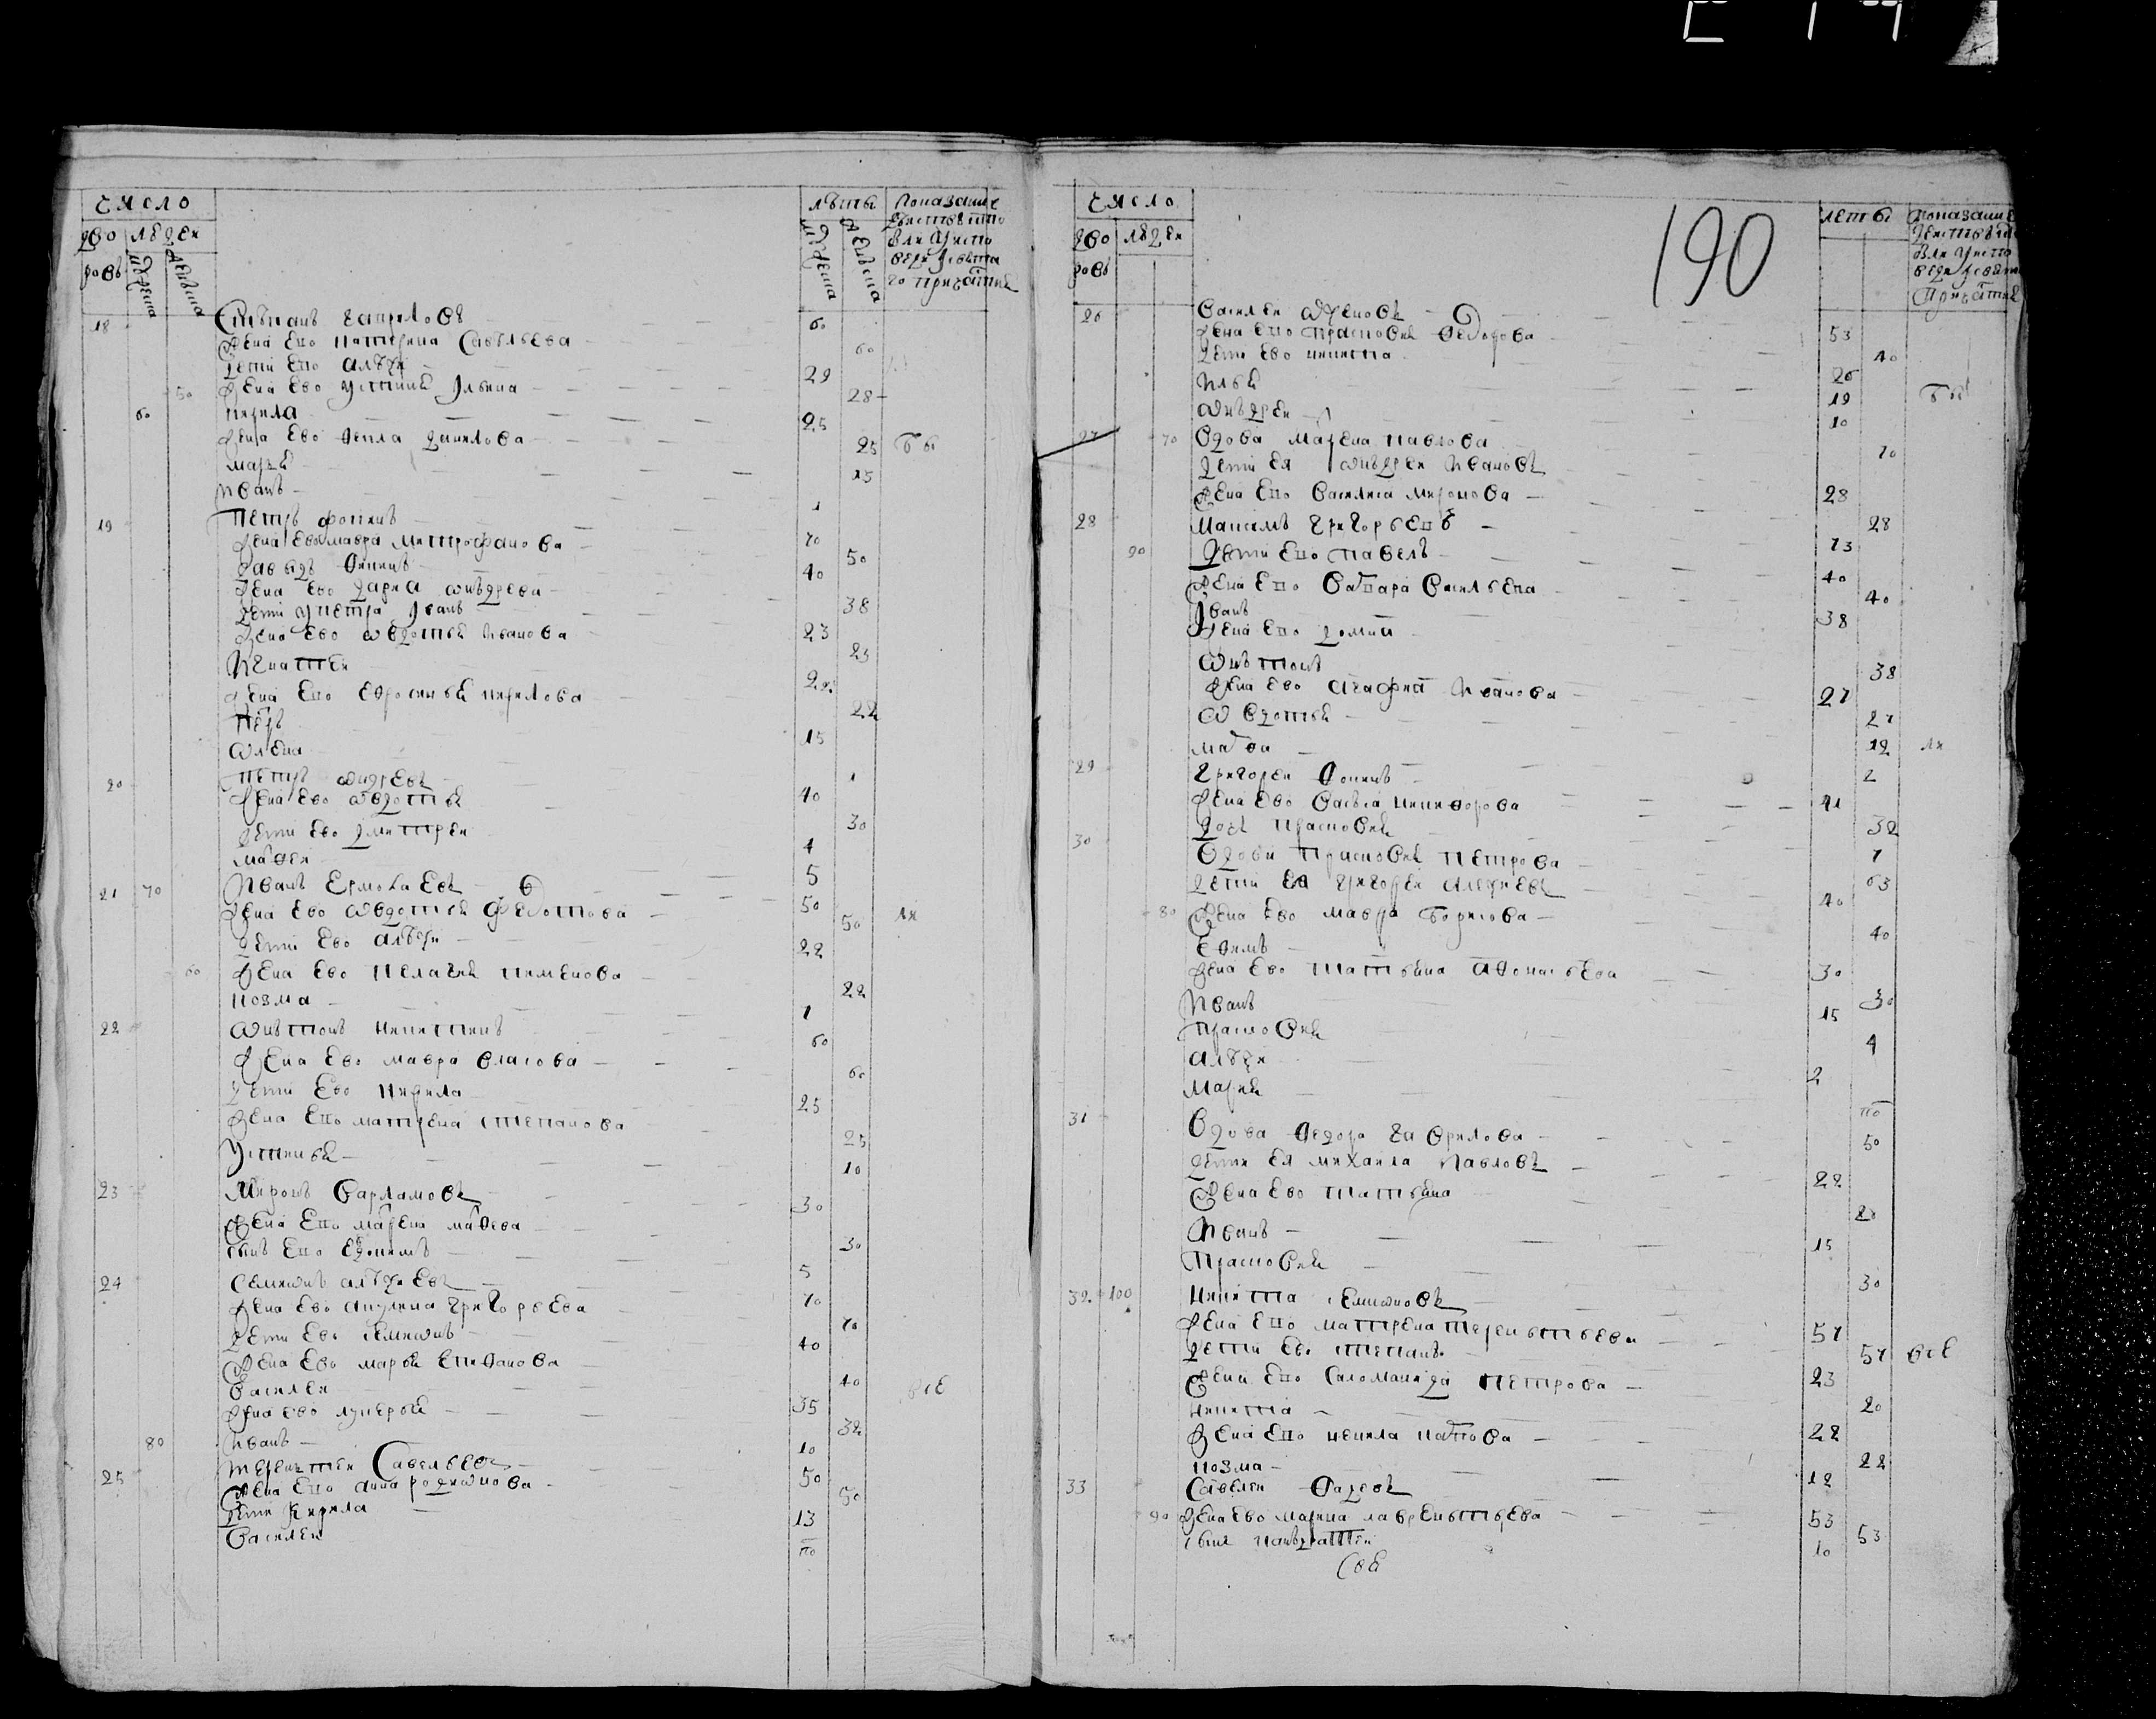 число
дво людеи
ровъ мужеска женска
лѣты
мужеска женска
показание
18 Степанъ Гаврилов 60
жена ево Катерина Савельева 60
дети ево Алѣѯи 29
50 жена ево Устиния Ильина 28
60 Кирила 25
жена ево Фекла Данилова 25
Мария 15
Иванъ 1
19 Петръ Фокинъ 70
жена ево Мавра Митрофанова 50
Давыдъ Фокинъ 40
жена ево Дарья Ѡндреева 38
дети у Петра Иванъ 23
жена ево Ѡвдотья Иванова 23
Игнатеи 22
жена ево Ефросинья Кирилова 22
Петръ 15
Ѡлена 1
20 Петръ Ѡндреевъ 40
жена ево Ѡвдотья 30
дети ево Дмитреи 4
Матфеи 5
21 70 Иванъ Ермолаевъ 50
жена ево Ѡвдотья Федотова 50
дети ево Алѣѯи 22
60 жена ево Пелагия Пименова 22
Козма 1
22 Ѡнтонъ Никитинъ 60
жена ево Мавра Власова 60
дети ево Кирила 25
жена ево Матрена Степанова 25
Устинья 10
23 Миронъ Варламовъ 30
жена ево Марфа Матфеева 30
сынъ ево Евдокимъ 5
24 Семионъ Алѣѯиевъ 70
жена ево Акулина Григорьева 70
дети ево Семионъ 40
жена ево Марья Епифанова 40
Василеи 35
жена ево Лукерья 32
80 Иванъ 10
25 Терентеи Савельевъ 50
жена ево Анна Родионова 50
дети Кирила 13
Василеи по
число
дво людеи
ровъ
190
леты
показание
26 Василеи 53
жена ево Прасковья Федорова 40
дети ево Никита 26
Илья 19
Ѡндреи 10
27 70 Вдова Марфа Павлова 70
дети ея Ѡндреи Ивановъ 28
жена ево Василиса Миронова 28
28 Максимъ Григорьевъ 73
90 дети ево Павелъ 40
жена ево Варвара Васильева 40
Иванъ 38
жена ево Домна 38
Ѡнтонъ 27
жена ево Агафия Иванова 27
Ѡвдотья 12
Матфеи 2
29 Григореи Фокинъ 41
жена ево Васса Никифорова 32
дочь Прасковья 7
30 Вдова Прасковья Петрова 63
дети ея Григореи Алеѯиевъ 40
80 жена ево Мавра Борисова 40
Ефимъ 30
жена ево Татьяна Афонасьева 30
Иванъ 15
Прасковья 4
Алѣѯи 2
Мария по
31 Вдова Федора Гаврилова 50
дети ея Михаила Павловъ 22
жена ево Татьяна 20
Иванъ 15
Прасковья 30
32 100 Никита Семионовъ 57
жена ево Матрена Терентьева 57
дети ево Степанъ 23
жена ево Саломанида Петрова 20
Никита 22
жена ево Ненила Карпова 22
Козма 12
33 Савелеи Фадеевъ 53
90 жена ево Марина Лаврентьева 53
сынъ Кондратеи 10